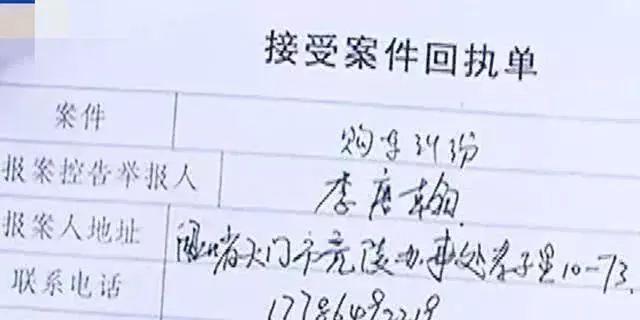 接受案件回执单
案件 购车纠纷
报案控告举报人 李唐翰
报案人地址 省天门市竟陵办事处孝子里10-73.
联系电话 17786492219